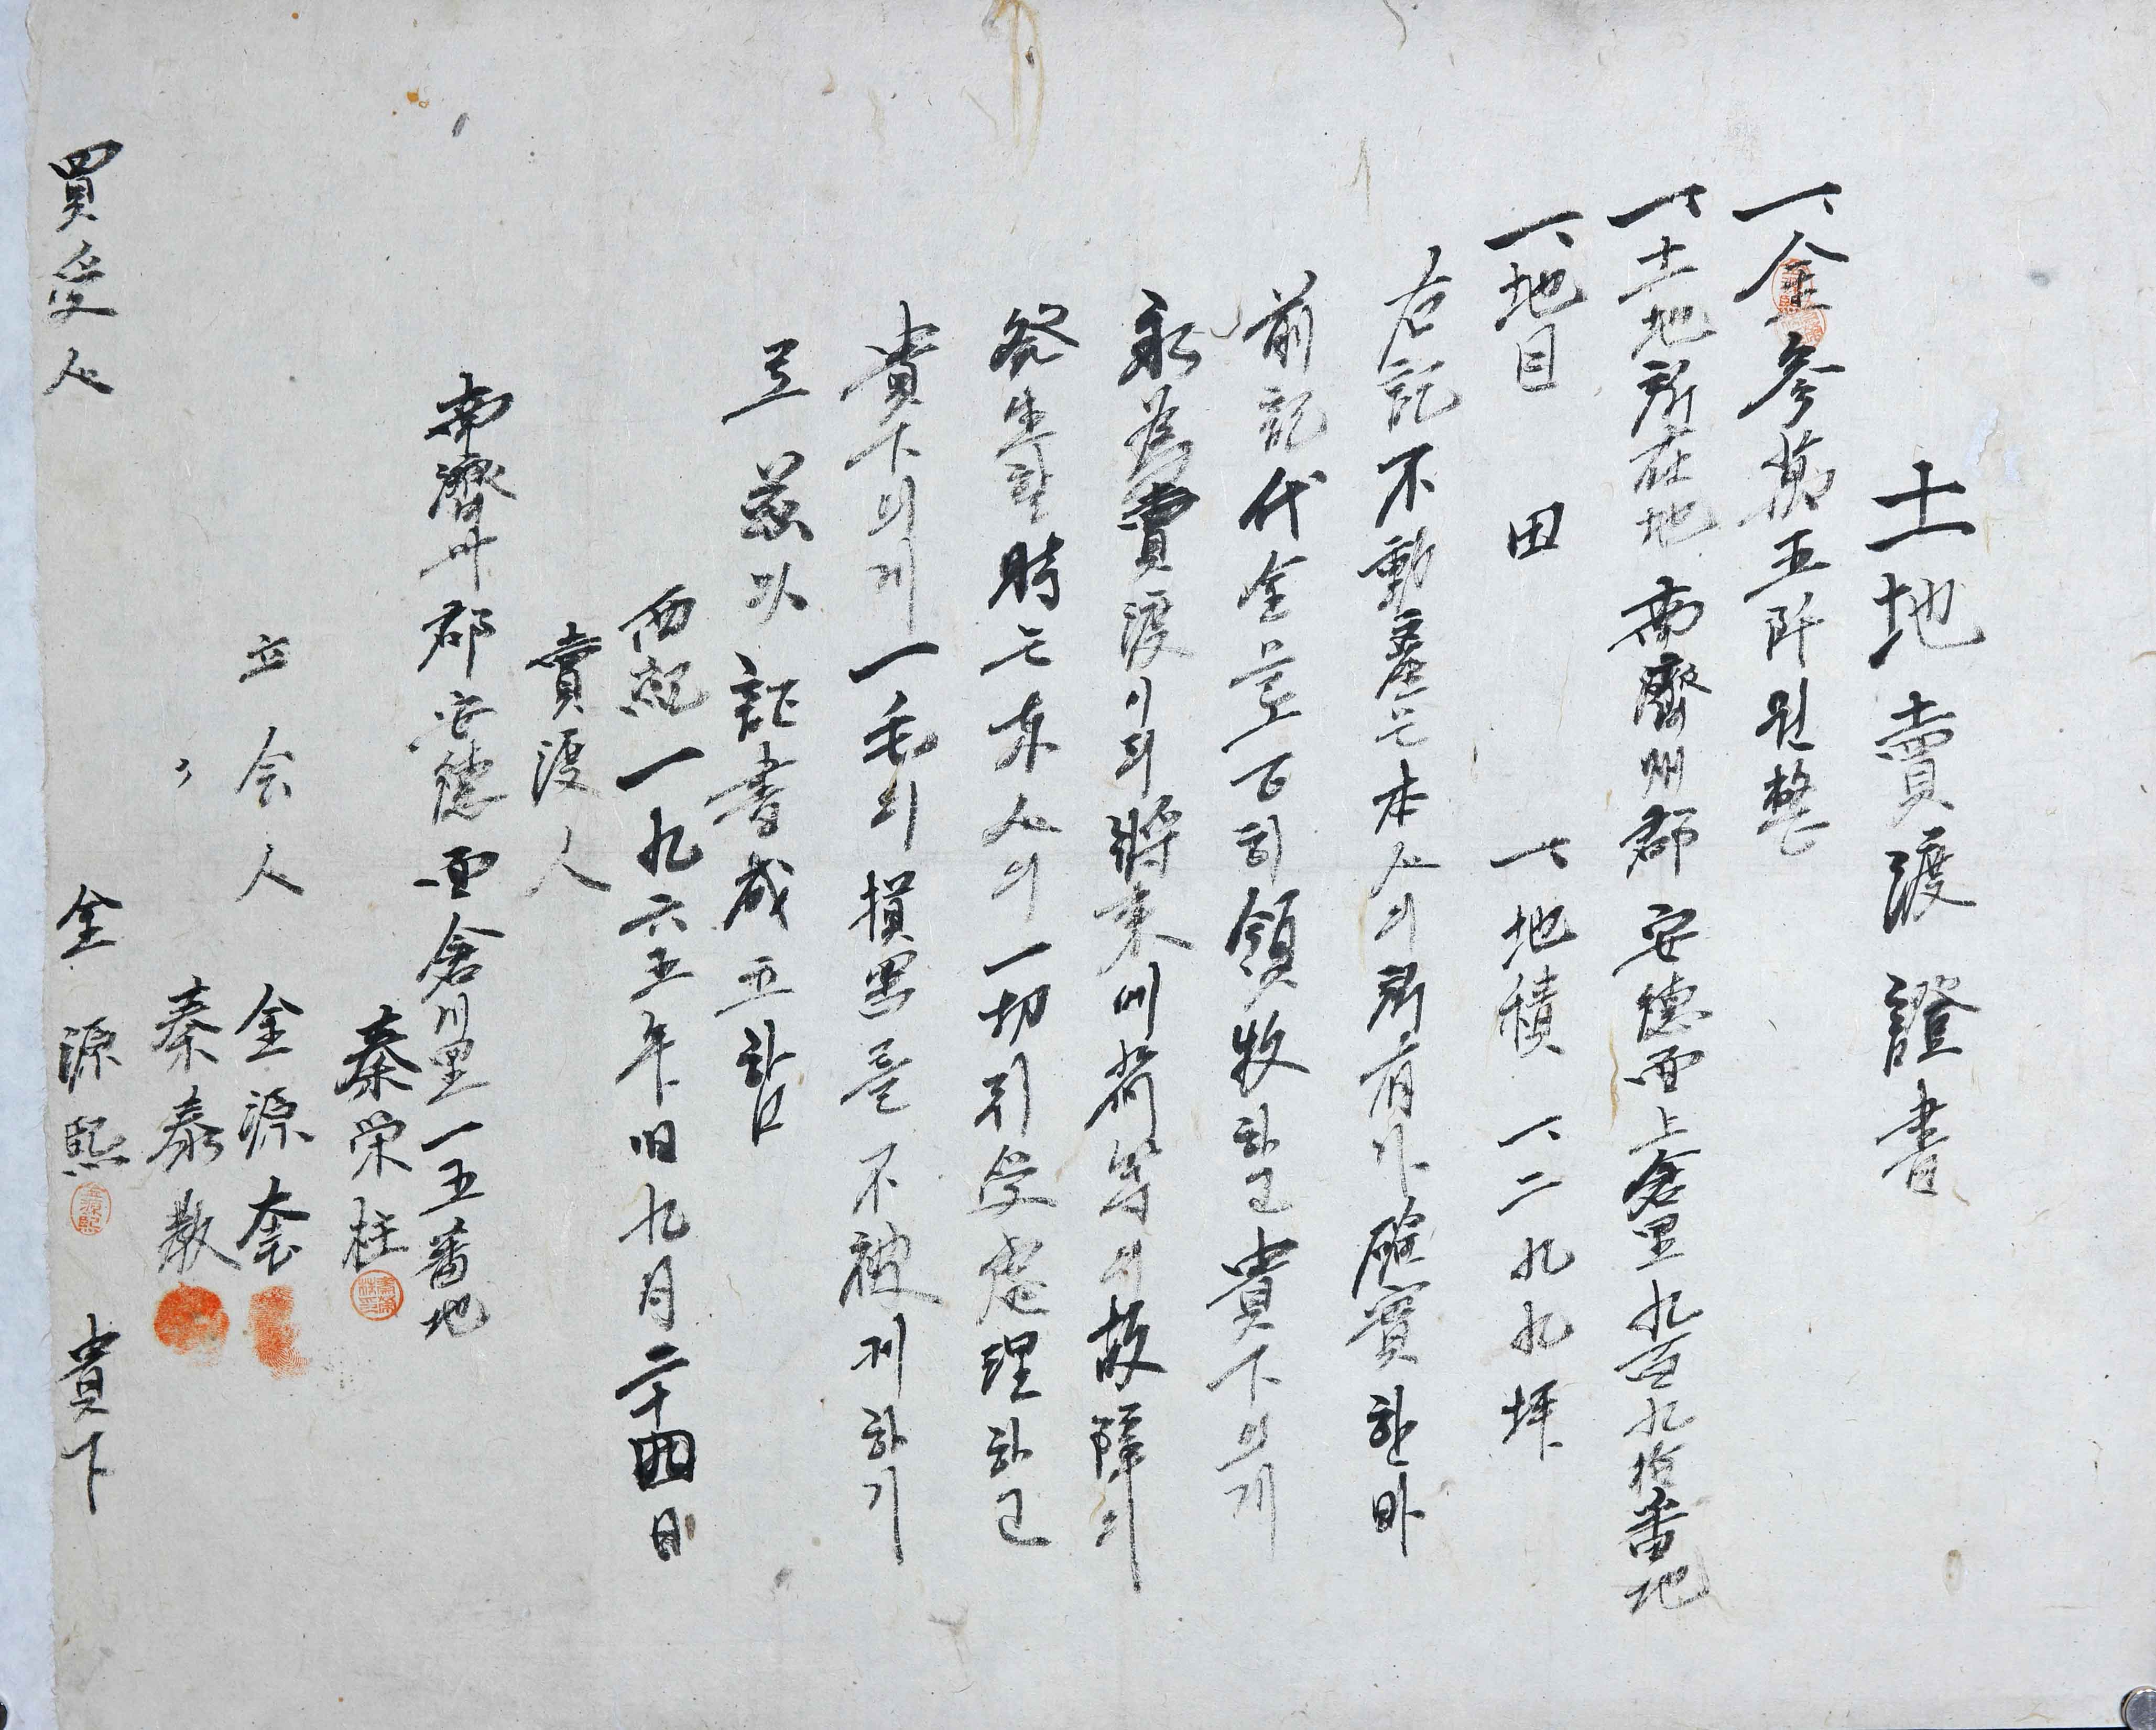 土地賣渡證書
一、金參萬五阡원整
一、土地所在地 南濟州郡 安德面 上倉里 九百九拾番地
一、地目 田 一、地積 一、二九九坪
右記不動産은 本人의 所有가 確實한바
前記代金을 正히 領收하고 貴下의게
永為賣渡이되 將來에 若 等의 故障이
発生할 時는 本人의 一切 引受處理하고
貴下의게 一毛의 損害를 不被게하기
로 茲以 証書 成立함
西紀一九六五年旧九月二十四日
賣渡人
南濟州郡安德面倉川里一五番地
秦栄柱
立会人 金源套
〃 秦泰散
買受人 金源熙 貴下